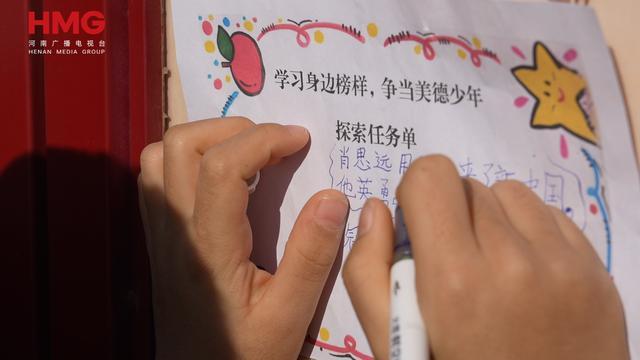 HMG
河南广播电视台
HENAN MEDIA GROUP
学习身边榜样，争当美德少年
探索任务单
肖思远用 来了 中国
他英勇